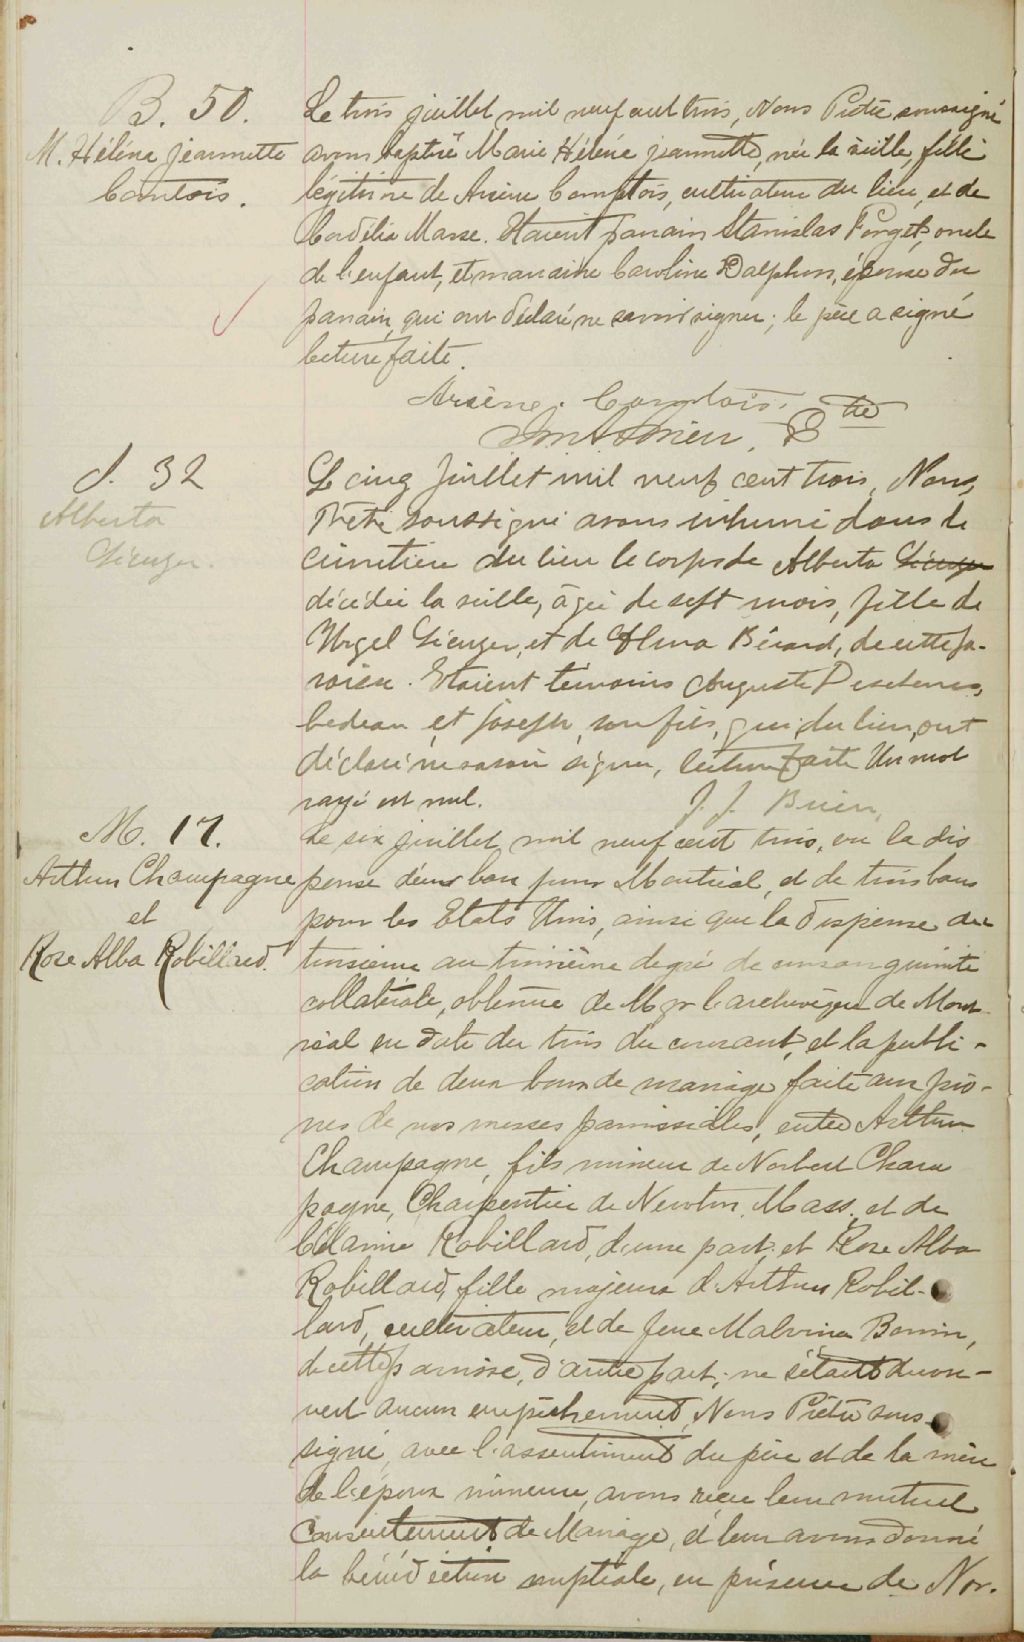 B. 50.
M. Hélène Jeannette
Comtois.
Le trois juillet mil neuf cent trois, Nous Prêtre soussigné
avons baptisé Marie Hélène Jeannette, née la veille, fille
légitime de Arsène Comptois, cultivateur du lieu, et de
Cordélia Masse. Etaient parrain Stanislas Forget, oncle
de l'enfant, et marraine Caroline Dalphon, épouse du
parrain, qui ont déclaré ne savoir signer; le père a signé
lecture faite.
Arsène. Comtois.
Ptre
S. 32
Alberta
Le cinq Juillet mil neuf cent trois, Nous,
Prêtre soussigné avons inhumé dans le
cimetière du lieu le corps de Alberta
décédée la veille, âgée de sept mois, fille de
Urgel et de Alma Bérard, de cette pa-
roisse. Etaient témoins Auguste
bedeau et Joseph, son fils, qui, du lieu, ont
déclaré ne savoir signer, lecture faite Un mot
rayé est nul.
J. J. Brien,
M. 17.
Arthur Champagne
et
Rose Alba Robillard.
Le six juillet mil neuf cent trois, vu la dis
pense d'un ban pour Montréal, et de trois bans
pour les Etats Unis, ainsi que la dispense du
troisième au troisième degré de consanguinité
collatérale, obtenue de Mgr l'archevêque de Mont-
réal en date du trois du courant, et la publi-
cation de deux bans de mariage faite aux prô-
nes de nos messes paroissiales, entre Arthur
Champagne, fils mineur de Norbert Cham
pagne, Charpentier de Newton, Mass, et de
Célanire Robillard, d'une part, et Rose Alba
Robillard, fille majeure d'Arthur Robil-
lard, cultivateur, et de feue Malvina Bonin,
de cette paroisse, d'autre part; ne s'étant décou-
vert aucun empêchement, Nous Prêtre sous-
signé, avec l'assentiment du père et de la mère
de l'époux mineur, avons reçu leur mutuel
consentement de Mariage, et leur avons donné
la bénédiction nuptiale, en présence de Nor-